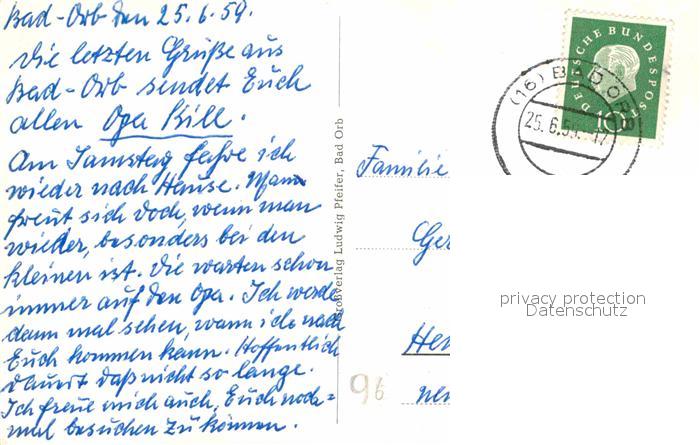 Bad-Orb den 25.6.59.
Die letzten Grüße aus
Bad-Orb sendet Euch
allen Opa Kill.
Am Samstag fahre ich
wieder nach Hause. Mann
freut sich doch, wenn man
wieder, besonders bei den
kleinen ist. Die warten schon
immer auf den Opa. Ich werde
dann mal sehen, wann ich nach
Euch kommen kann. Hoffentlich
dauert daß nicht so lange.
Ich freue mich auch, Euch noch=
mal besuchen zu können.
verlag Ludwig Pfeifer, Bad Orb
DEUTSCHE BUNDESPOST
10
(16) BAD ORB
25.6.59.-17
Familie
Ger
Hei
96
privacy protection
Datenschutz